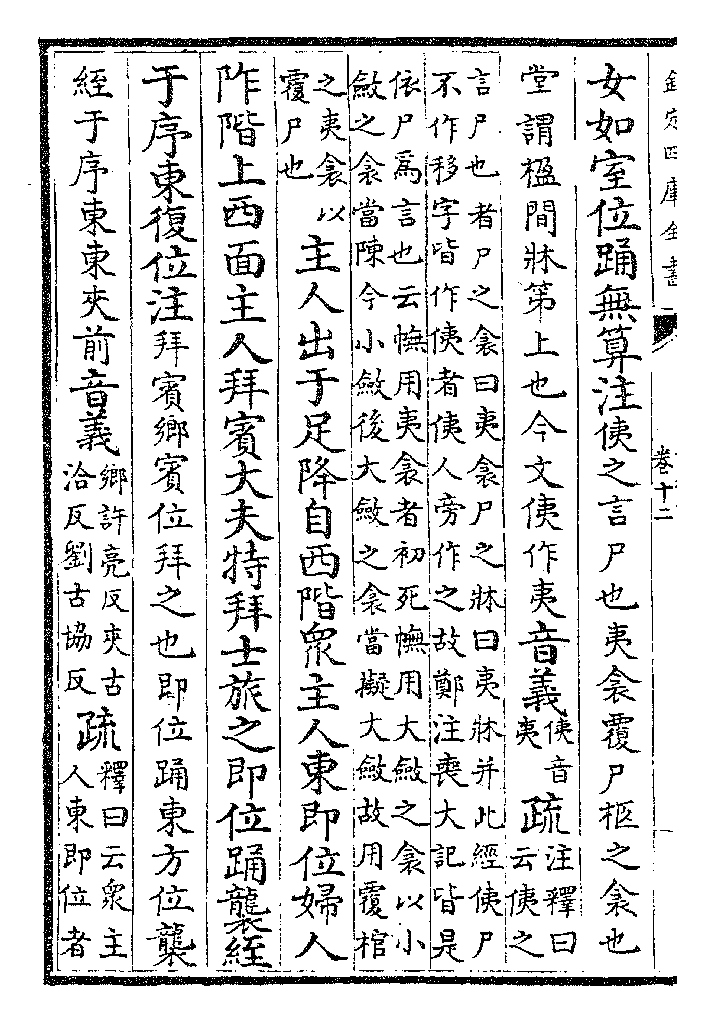 欽定四庫全書
卷十二
女如室位踊無算注侇之言尸也夷衾覆尸柩之衾也
堂謂楹間牀第上也今文侇作夷音義
侇音
夷
疏
注釋曰
云侇之
言尸也者尸之衾曰夷衾尸之牀曰夷牀并此經侇尸
不作移字皆作侇者侇人旁作之故鄭注喪大記皆是
依尸爲言也云幠用夷衾者初死幠用大斂之衾以小
斂之衾當陳今小斂後大斂之衾當擬大斂故用覆棺
之夷衾以
覆尸也
主人出于足降自西階眾主人東即位婦人
阼階上西面主人拜賓大夫特拜士旅之即位踊襲絰
于序東復位注拜賓鄉賓位拜之也即位踊東方位襲
絰于序東東夾前音義
鄉許亮反夾古
洽反劉古協反
疏
釋曰云眾主
人東即位者